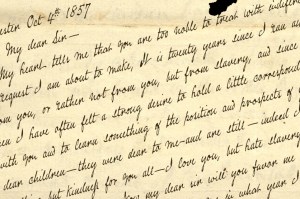 ester Oct 4th 1857
My dear Sir—
My heart tells me that you are too noble to treat with indiffer
request I am about to make, It is twenty years since I ran aw
om you, or rather not from you, but from slavery, and since
hen I have often felt a strong desire to hold a little correspond
with you and to learn something of the position and prospects of y
dear children—they were dear to me—and are still—indeed I
but kindness for you all—I love you, but hate slavery
my dear sir will you favor me
in what year I